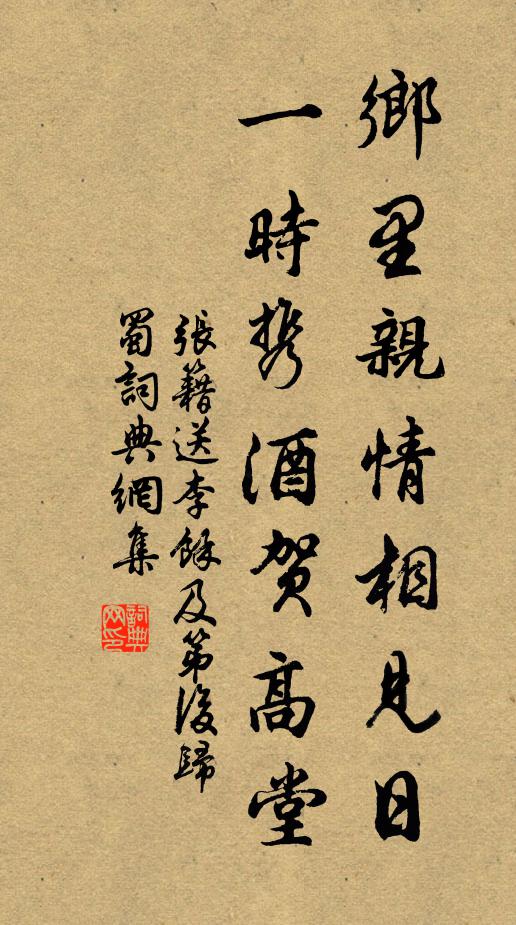 鄉里親情相見日
一時携酒賀高堂
張籍送李餘及第後歸
蜀詞典網集
詞典網印